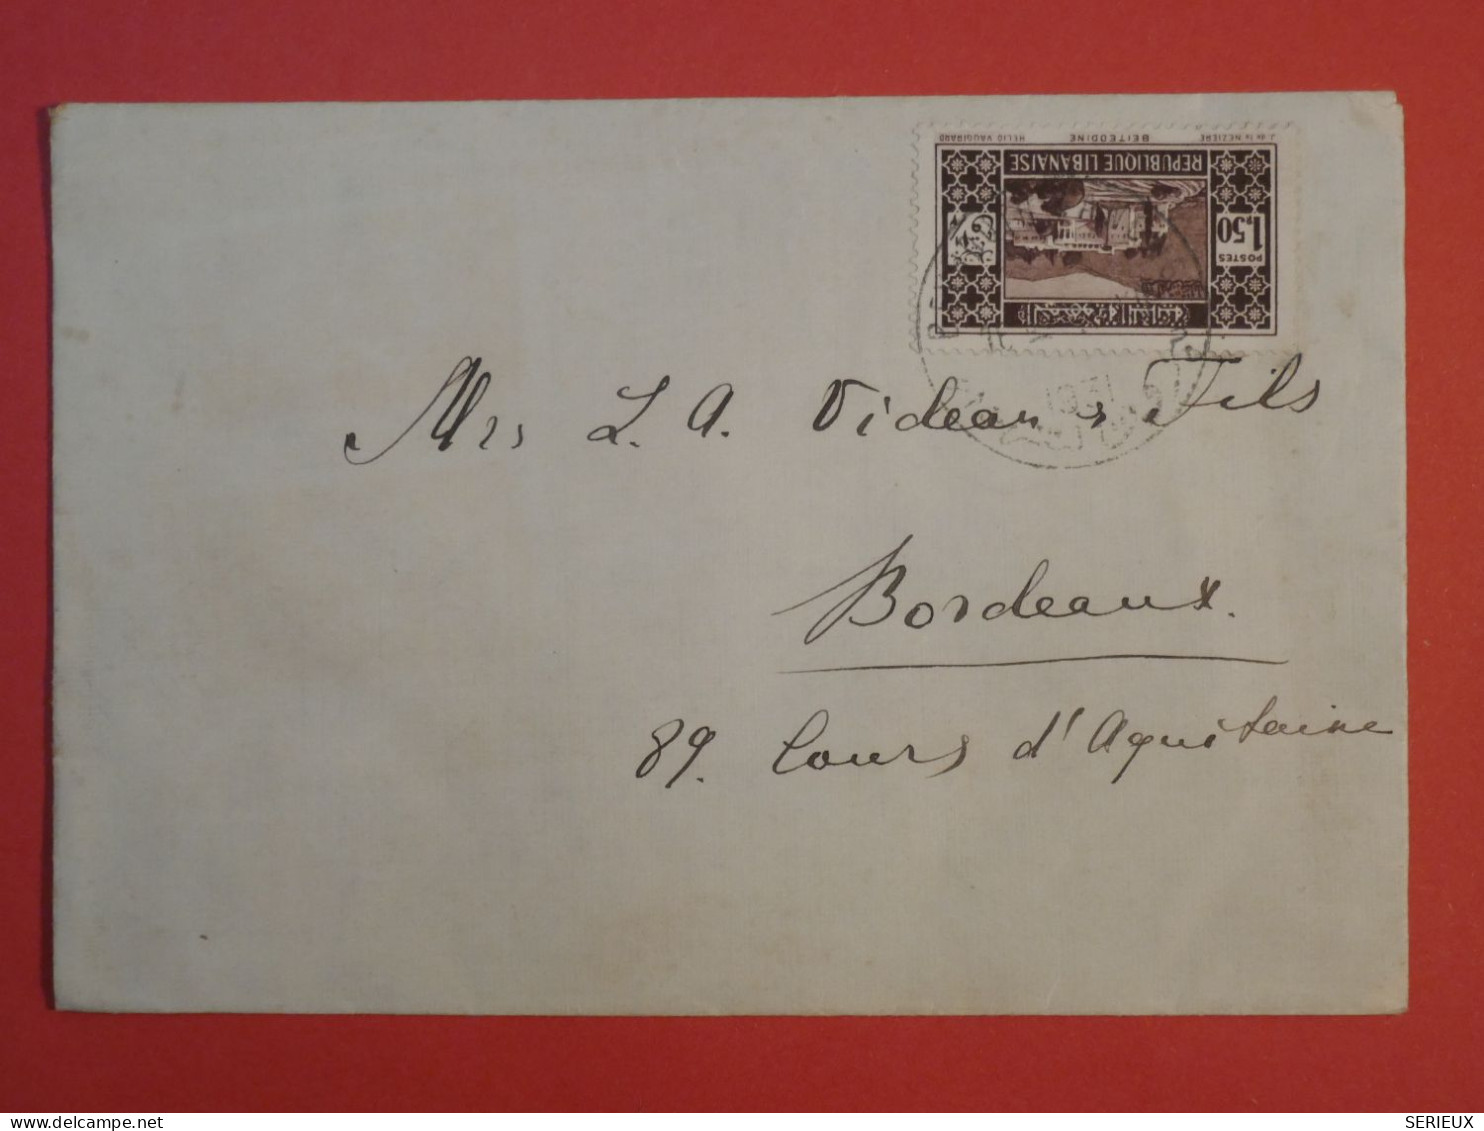 J. de la NEZIERE BEITEDDINE HELIO VAUGIRARD
REPUBLIQUE LIBANAISE
1,50
POSTES
1931
Mrs L. A. Videau & Fils
Bordeaux.
89. Cours d'Aquitaine
SERIEUX